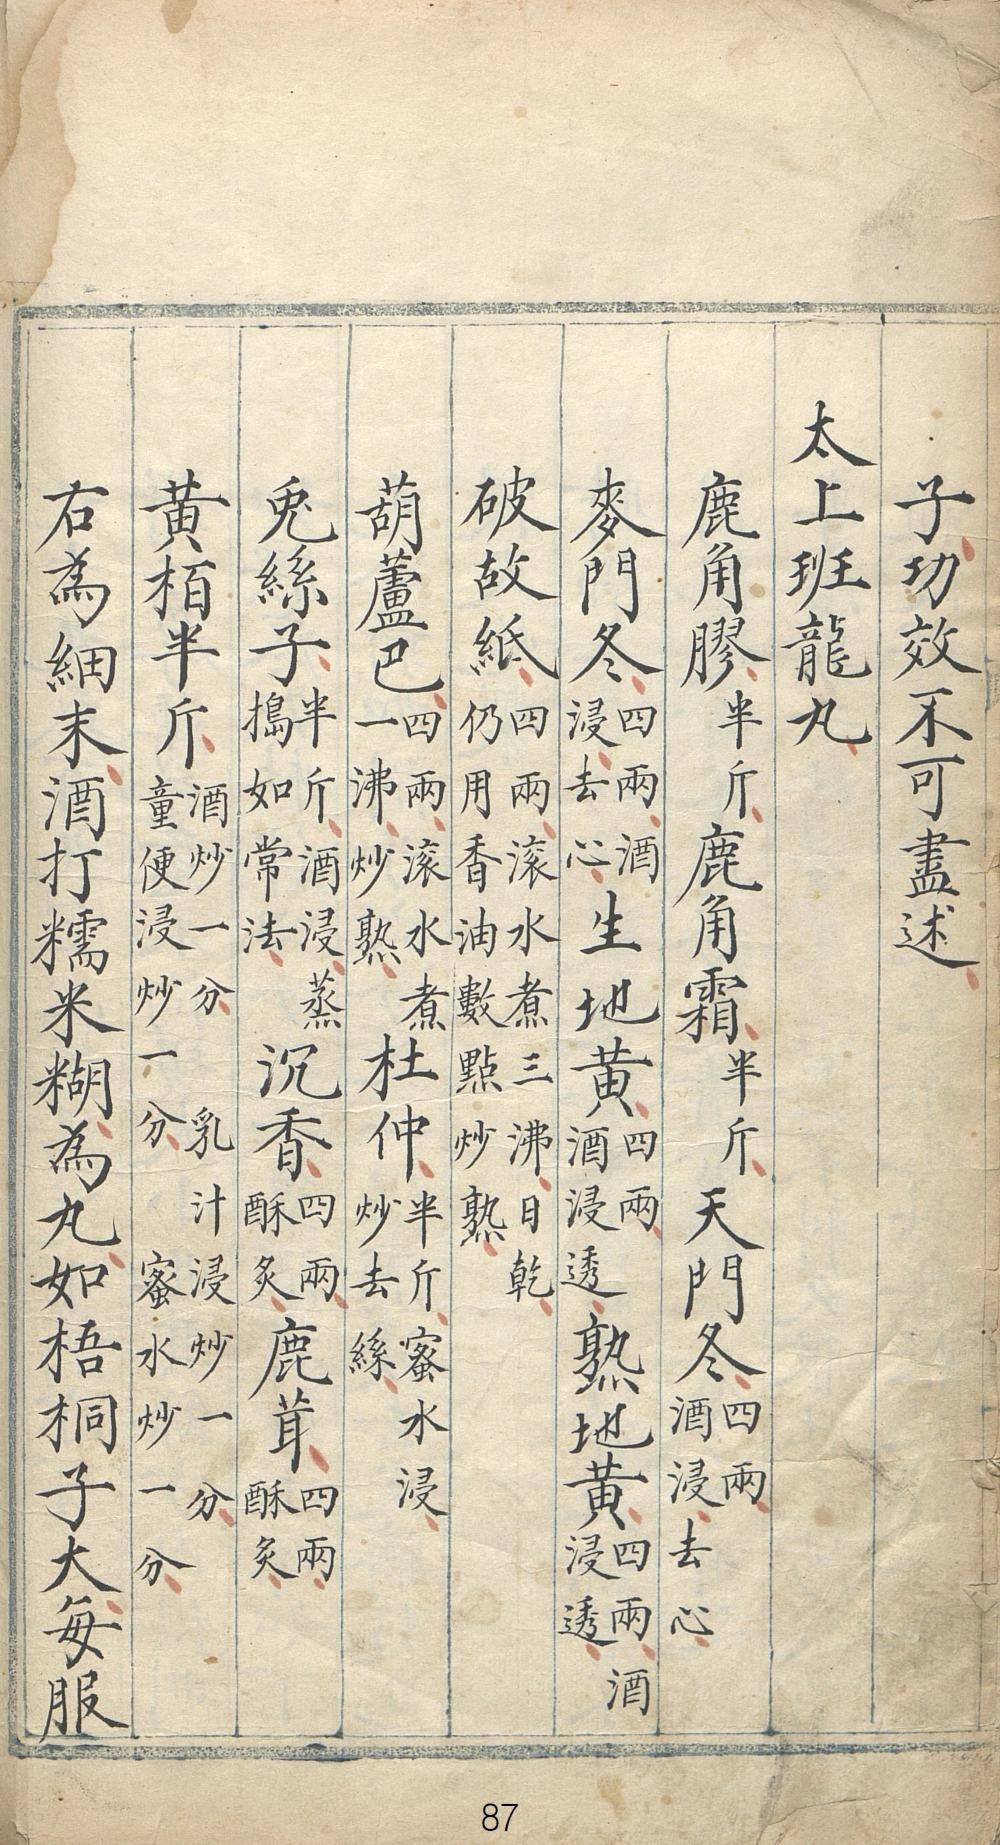 子功效不可盡述
太上班龍丸
鹿角膠半斤鹿角霜半斤天門冬四兩酒浸去心
麥門冬四兩酒浸去心生地黃四兩酒浸透熟地黃四兩酒浸透
破故紙四兩滚水煮三沸日乾仍用香油數點炒熟
葫蘆巴四兩滚水煮一沸炒熟杜仲半斤蜜水浸炒去絲
兎絲子半斤酒浸蒸搗如常法沉香四兩酥炙鹿茸四兩酥炙
黃栢半斤酒炒一分童便浸炒一分乳汁浸炒一分蜜水炒一分
右為細末酒打糯米糊為丸如梧桐子大每服
87